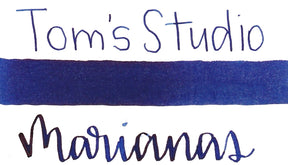 Tom's Studio
Marianas